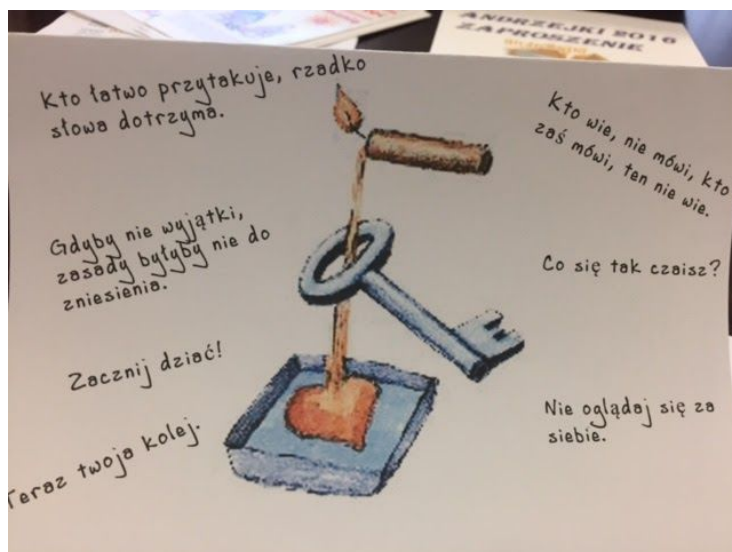 ANDRZEJKI 2016
ZAPROSZENIE
Kto łatwo przytakuje, rzadko
słowa dotrzyma.
Gdyby nie wyjątki,
zasady byłyby nie do
zniesienia.
Zacznij dziać!
Teraz twoja kolej.
Kto wie, nie mówi, kto
zaś mówi, ten nie wie.
Co się tak czaisz?
Nie oglądaj się za
siebie.